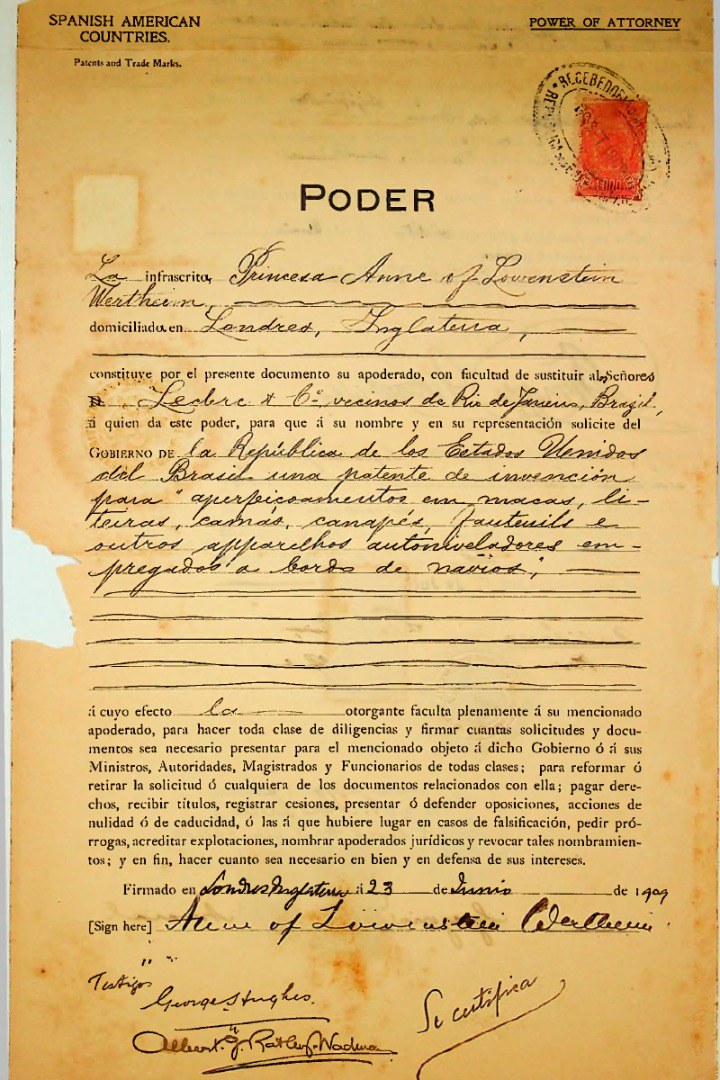 SPANISH AMERICAN
COUNTRIES.
Patents and Trade Marks.
POWER OF ATTORNEY
PODER
La infrascrita, Princesa Anne of Lowenstein
Wertheim,
domiciliada en Londres, Inglaterra,
constituye por el presente documento su apoderado, con facultad de sustituir al Señores
Leclerc & Co. vecinos de Rio de Janeiro, Brazil,
á quien da este poder, para que á su nombre y en su representación solicite del
GOBIERNO DE la República de los Estados Unidos
del Brasil una patente de invención
para "aperfeicoamentos em macas, li-
teiras, camas, canapés, fauteuils e
outros apparelhos autoniveladores em-
pregados a bordo de navios",
á cuyo efecto la otorgante faculta plenamente á su mencionado
apoderado, para hacer toda clase de diligencias y firmar cuantas solicitudes y docu-
mentos sea necesario presentar para el mencionado objeto á dicho Gobierno ó á sus
Ministros, Autoridades, Magistrados y Funcionarios de todas clases; para reformar ó
retirar la solicitud ó cualquiera de los documentos relacionados con ella; pagar dere-
chos, recibir títulos, registrar cesiones, presentar ó defender oposiciones, acciones de
nulidad ó de caducidad, ó las á que hubiere lugar en casos de falsificación, pedir pró-
rrogas, acreditar explotaciones, nombrar apoderados jurídicos y revocar tales nombramien-
tos; y en fin, hacer cuanto sea necesario en bien y en defensa de sus intereses.
Firmado en Londres Inglaterra á 23 de Junio de 1909
[Sign here] Anne of Löwenstein Wertheim
Testigos
George S Hughes.
Se certifica
Albert. J.